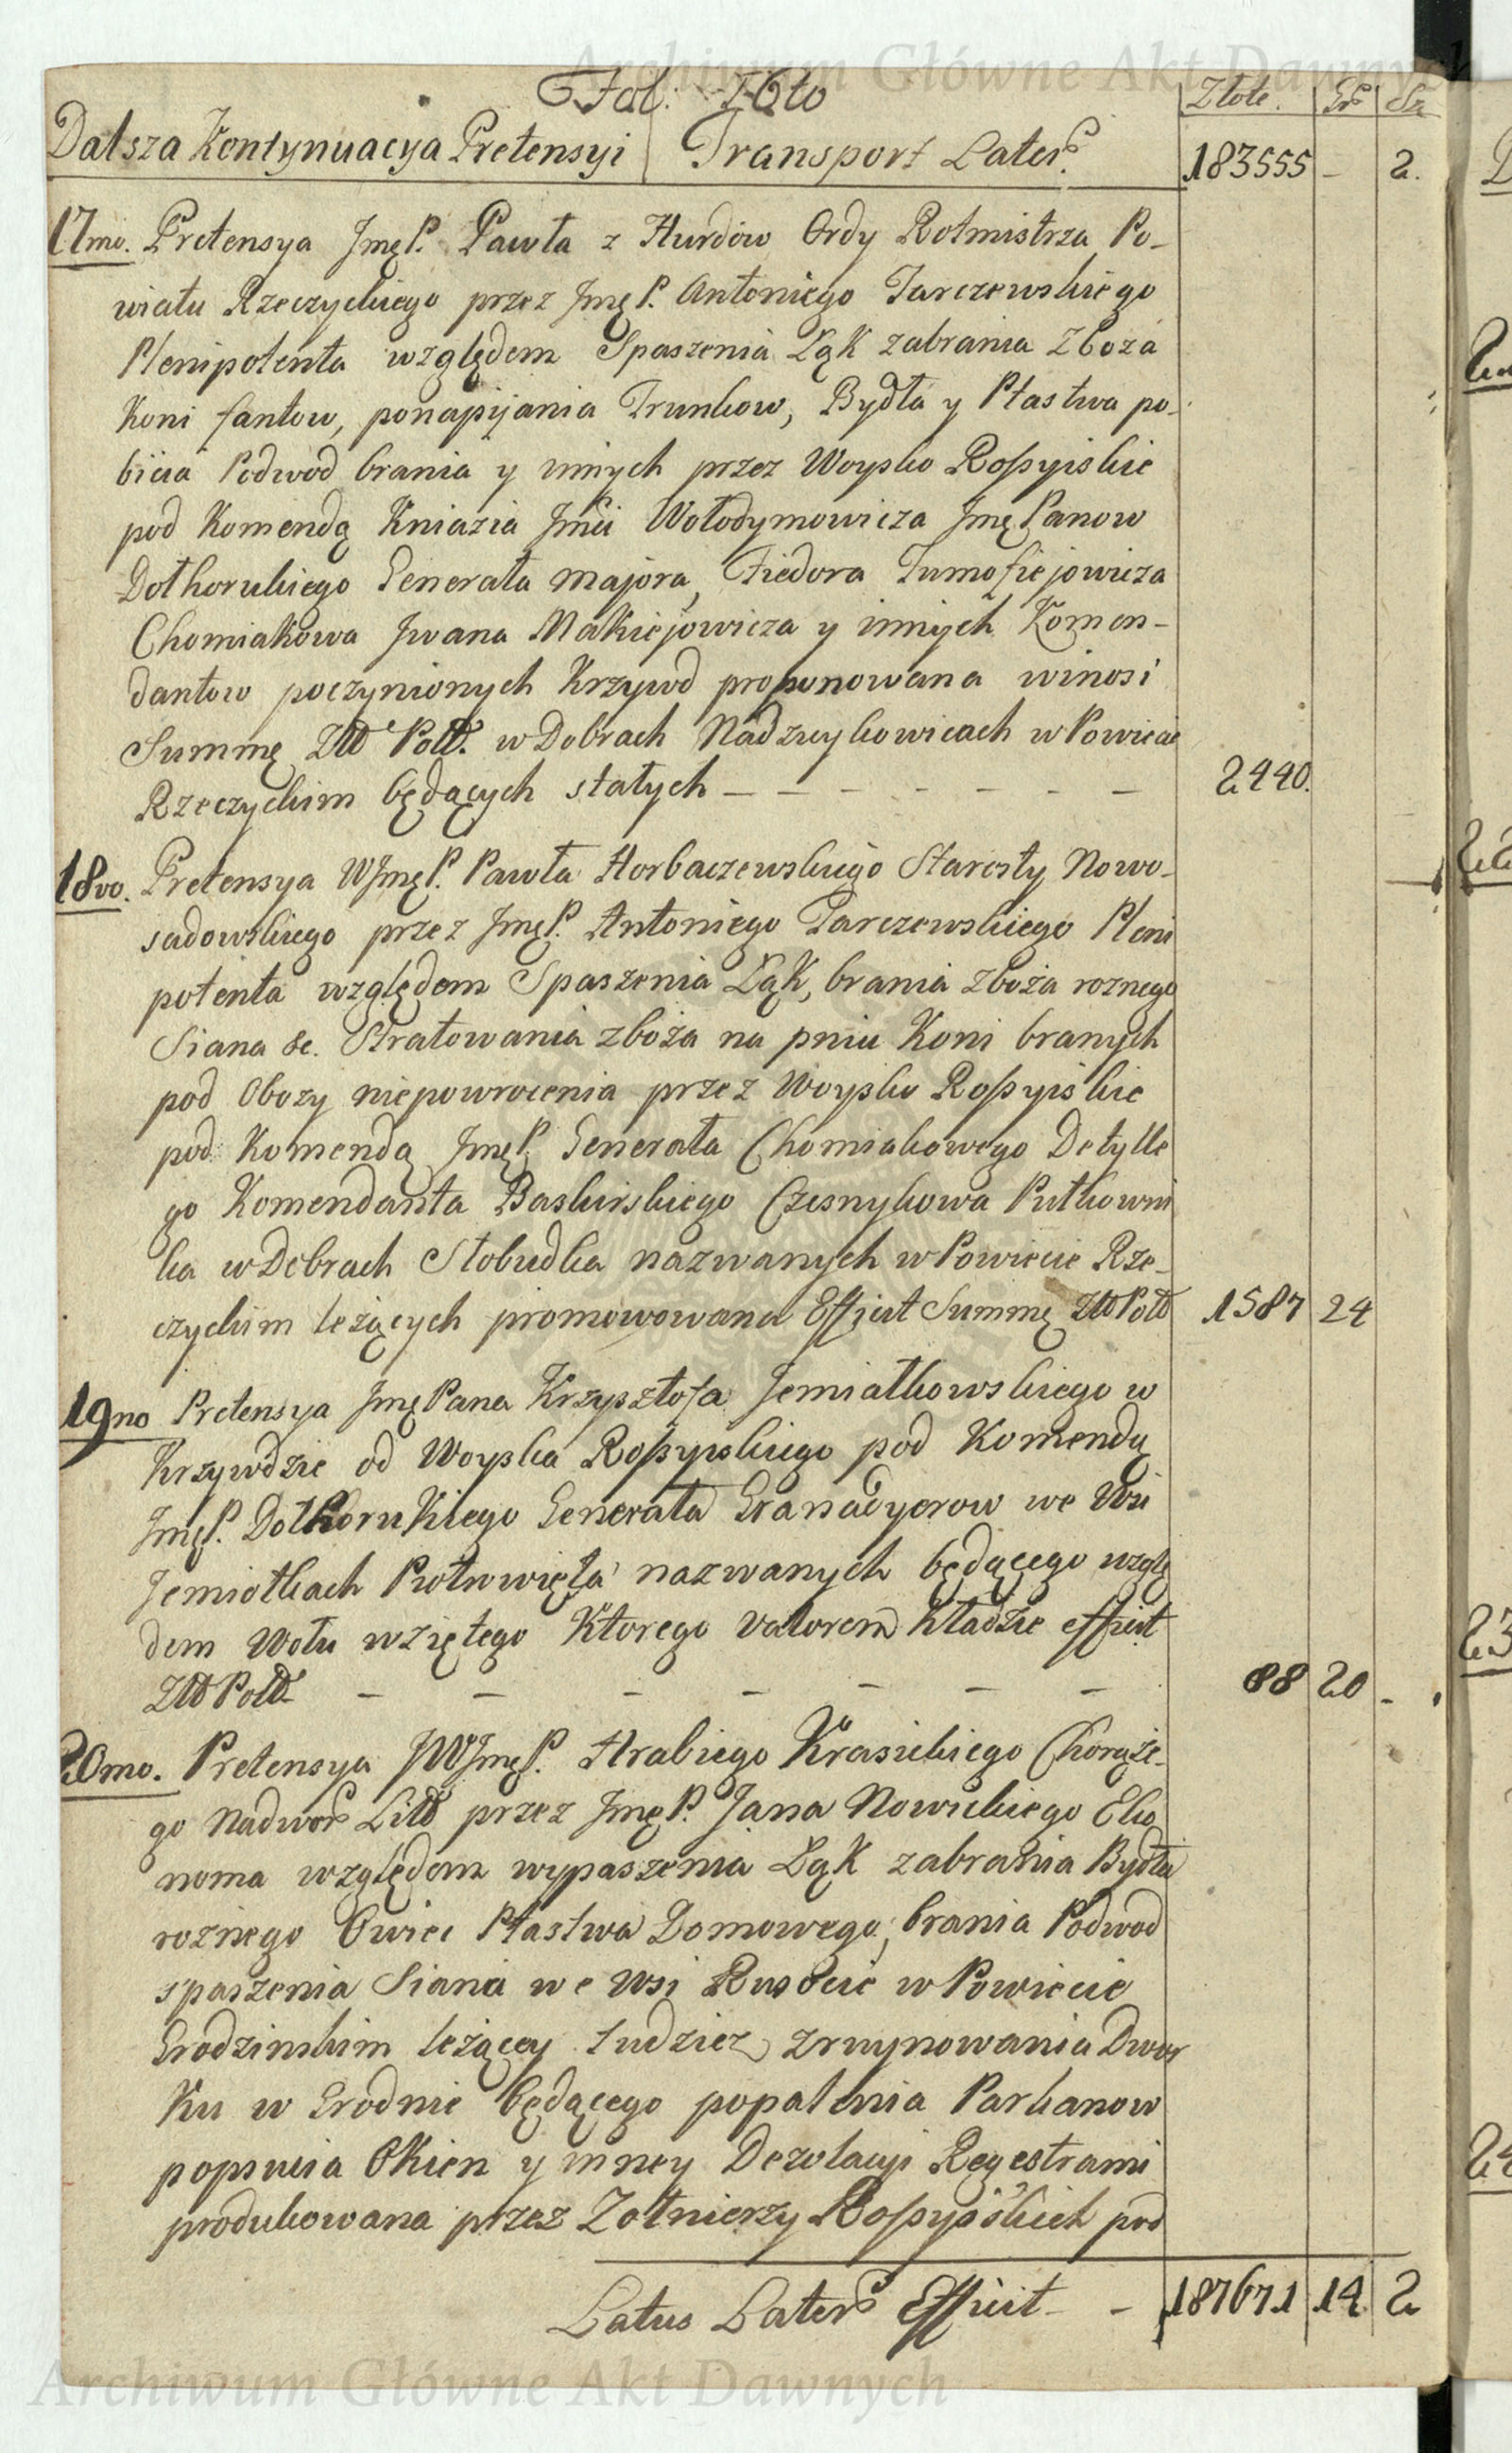 Archiwum Główne Akt Dawnych
Fol. 76to
Złote. Gr Sz
Dalsza Kontynuacya Pretensyi Transport Laters. 183555 – 2.
17mo. Pretensya JmęP. Pawła z Hurdow Ordy Rotmistrza Po-
wiatu Rzeczyckiego przez JmęP. Antoniego Tarczewskiego
Plenipotenta względem Spaszenia Łąk zabrania Zboza
Koni fantow, ponapijania Trunkow, Bydła y Ptastwa po-
bicia Podwod brania y innych przez Woysko Roſsyiskie
pod Komendą Kniazia Jmći Wołodymowicza Jmę Panow
Dołhorukiego Generała majora, Fiedora Tumofiejowicza
Chomiakowa Jwana Makiejowicza y innych Komen-
dantow poczynionych Krzywd proponowana winosi
Summę Złł Poll. w Dobrach Nadzwykowicach w Powiecie
Rzeczyckim będących stałych – – – – – – – 2440.
18vo. Pretensya WJmęP. Pawła Horbaczewskiego Starosty Nowo-
sadowskiego przez JmęP. Antoniego Tarczewskiego Pleni
potenta względem Spaszenia Łąk, brania zboża roznego
Siana &c. Stratowania zboża na pniu Koni branych
pod Obozy niepowrocenia przez Woysko Roſsyiskie
pod Komendą JmęP. Generała Chomiakowego Detylle
go Komendanta Baskirskiego Czesnykowa Pułkowni
ka w Dobrach Słobudka nazwanych w Powiecie Rze-
czyckim leżących promowowana Efficit Summę Złł Poll 1587 24
19no Pretensya Jmę Pana Krzysztofa Jemiałkowskiego w
Krzywdzie od Woyska Roſsyiskiego pod Komendą
JmęP. DołhoruKiego Generała Granadyerow we Wsi
Jemiołkach Piotrowięta nazwanych będącego wzglę
dem Wołu wziętego Ktorego valorem Kładzie efficit
Złł Poll – – – – – – – 88 20 –
20mo. Pretensya JWJmęP. Hrabiego Krasickiego Chorąże-
go Nadwor Litt przez JmęP. Jana Nowickiego Eko
noma względem wypaszenia Łąk zabrania Bydła
roznego Owiec Ptastwa Domowego, brania Podwod
spaszenia Siana we Wsi w Powiecie
Grodzinskim leżącey tudziez zruynowania Dwor
Ku w Grodnie będącego popalenia Parkanow
popsucia OKien y inney Dezolacyi Regestrami
produkowana przez Żołnierzy Roſsyiskich pod
Latus Laters Efficit – – 187671 14 2
Archiwum Główne Akt Dawnych